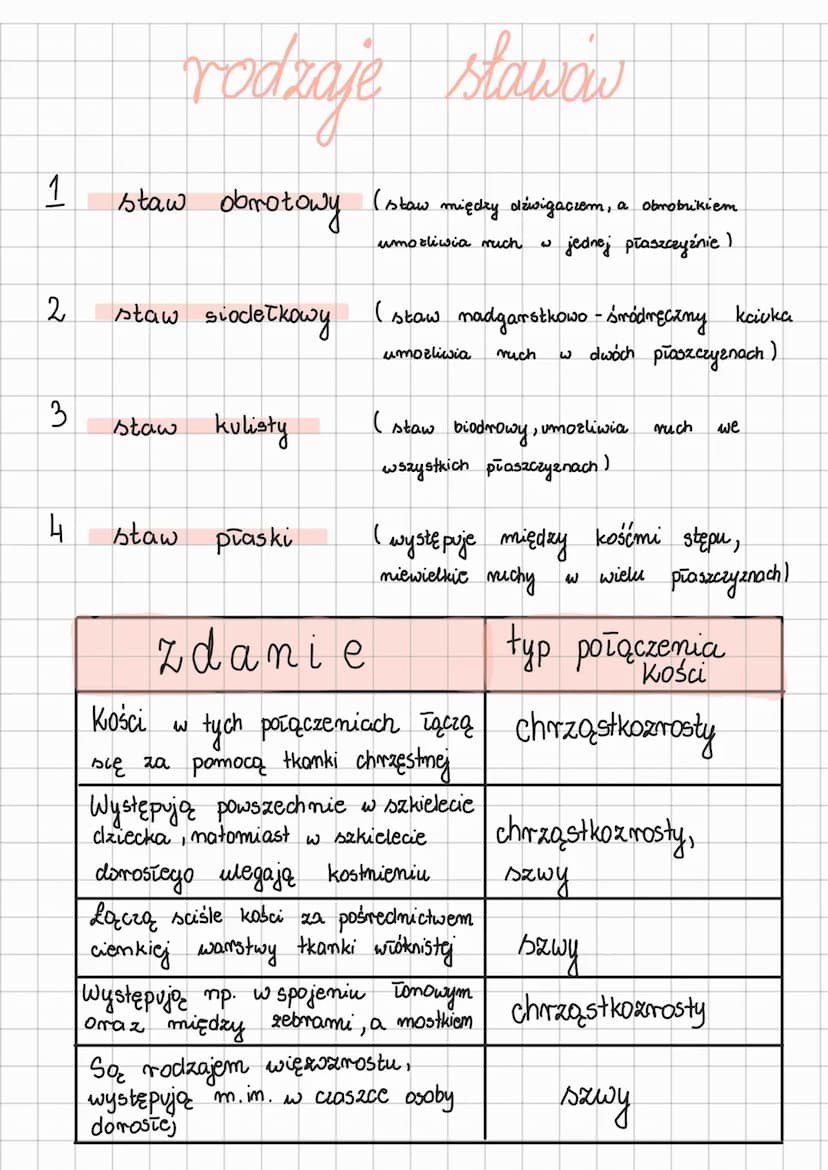 rodzaje stawów
1 staw obrotowy (staw między dźwigaczem, a obrotnikiem
umożliwia ruch w jednej płaszczyźnie)
2 staw siodełkowy (staw nadgarstkowo - śródręczny kciuka
umożliwia ruch w dwóch płaszczyznach)
3 staw kulisty (staw biodrowy, umożliwia ruch we
wszystkich płaszczyznach)
4 staw płaski (występuje między kośćmi stępu,
niewielkie ruchy w wielu płaszczyznach)
zdanie typ połączenia
kości
Kości w tych połączeniach łączą
się za pomocą tkanki chrzęstnej
chrząstkozrosty
Występują powszechnie w szkielecie
dziecka, natomiast w szkielecie
dorosłego ulegają kostnieniu
chrząstkozrosty,
szwy
Łączą sciśle kości za pośrednictwem
cienkiej warstwy tkanki włóknistej
szwy
Występują np. w spojeniu łonowym
oraz między żebrami, a mostkiem
chrząstkozrosty
Są rodzajem więzozrostu,
występują m.in. w czaszce osoby
dorosłej
szwy